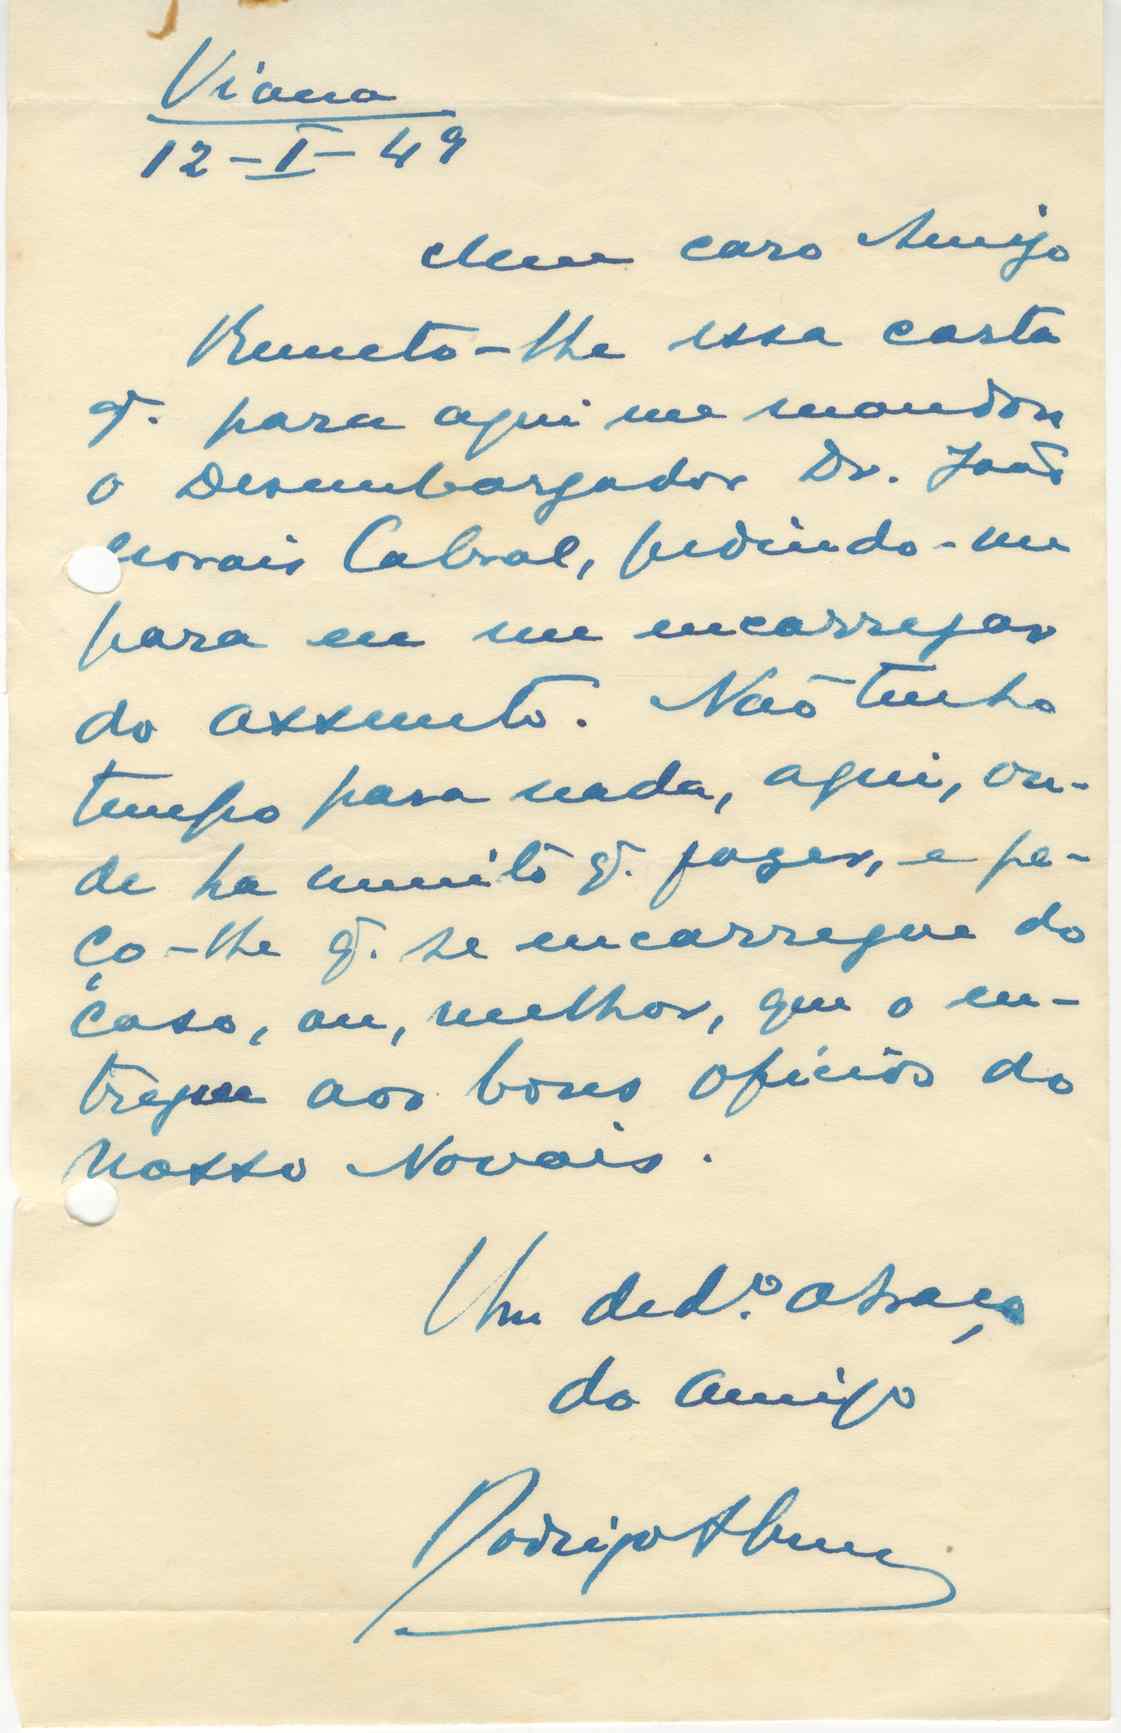 Viana
12-I-49
Meu caro Amigo
Remeto-lhe essa carta
q. para aqui me mandou
o Desembargador Dr. João
Morais Cabral, pedindo-me
para eu me encarregar
do assunto. Não tenho
tempo para nada, aqui, on-
de ha muito q. fazer, e pe-
ço-lhe q. se encarregue do
caso, ou, melhor, que o en-
tregue aos bons ofícios do
nosso Novais.
Um ded.º abraço
do amigo
Rodrigo Abreu